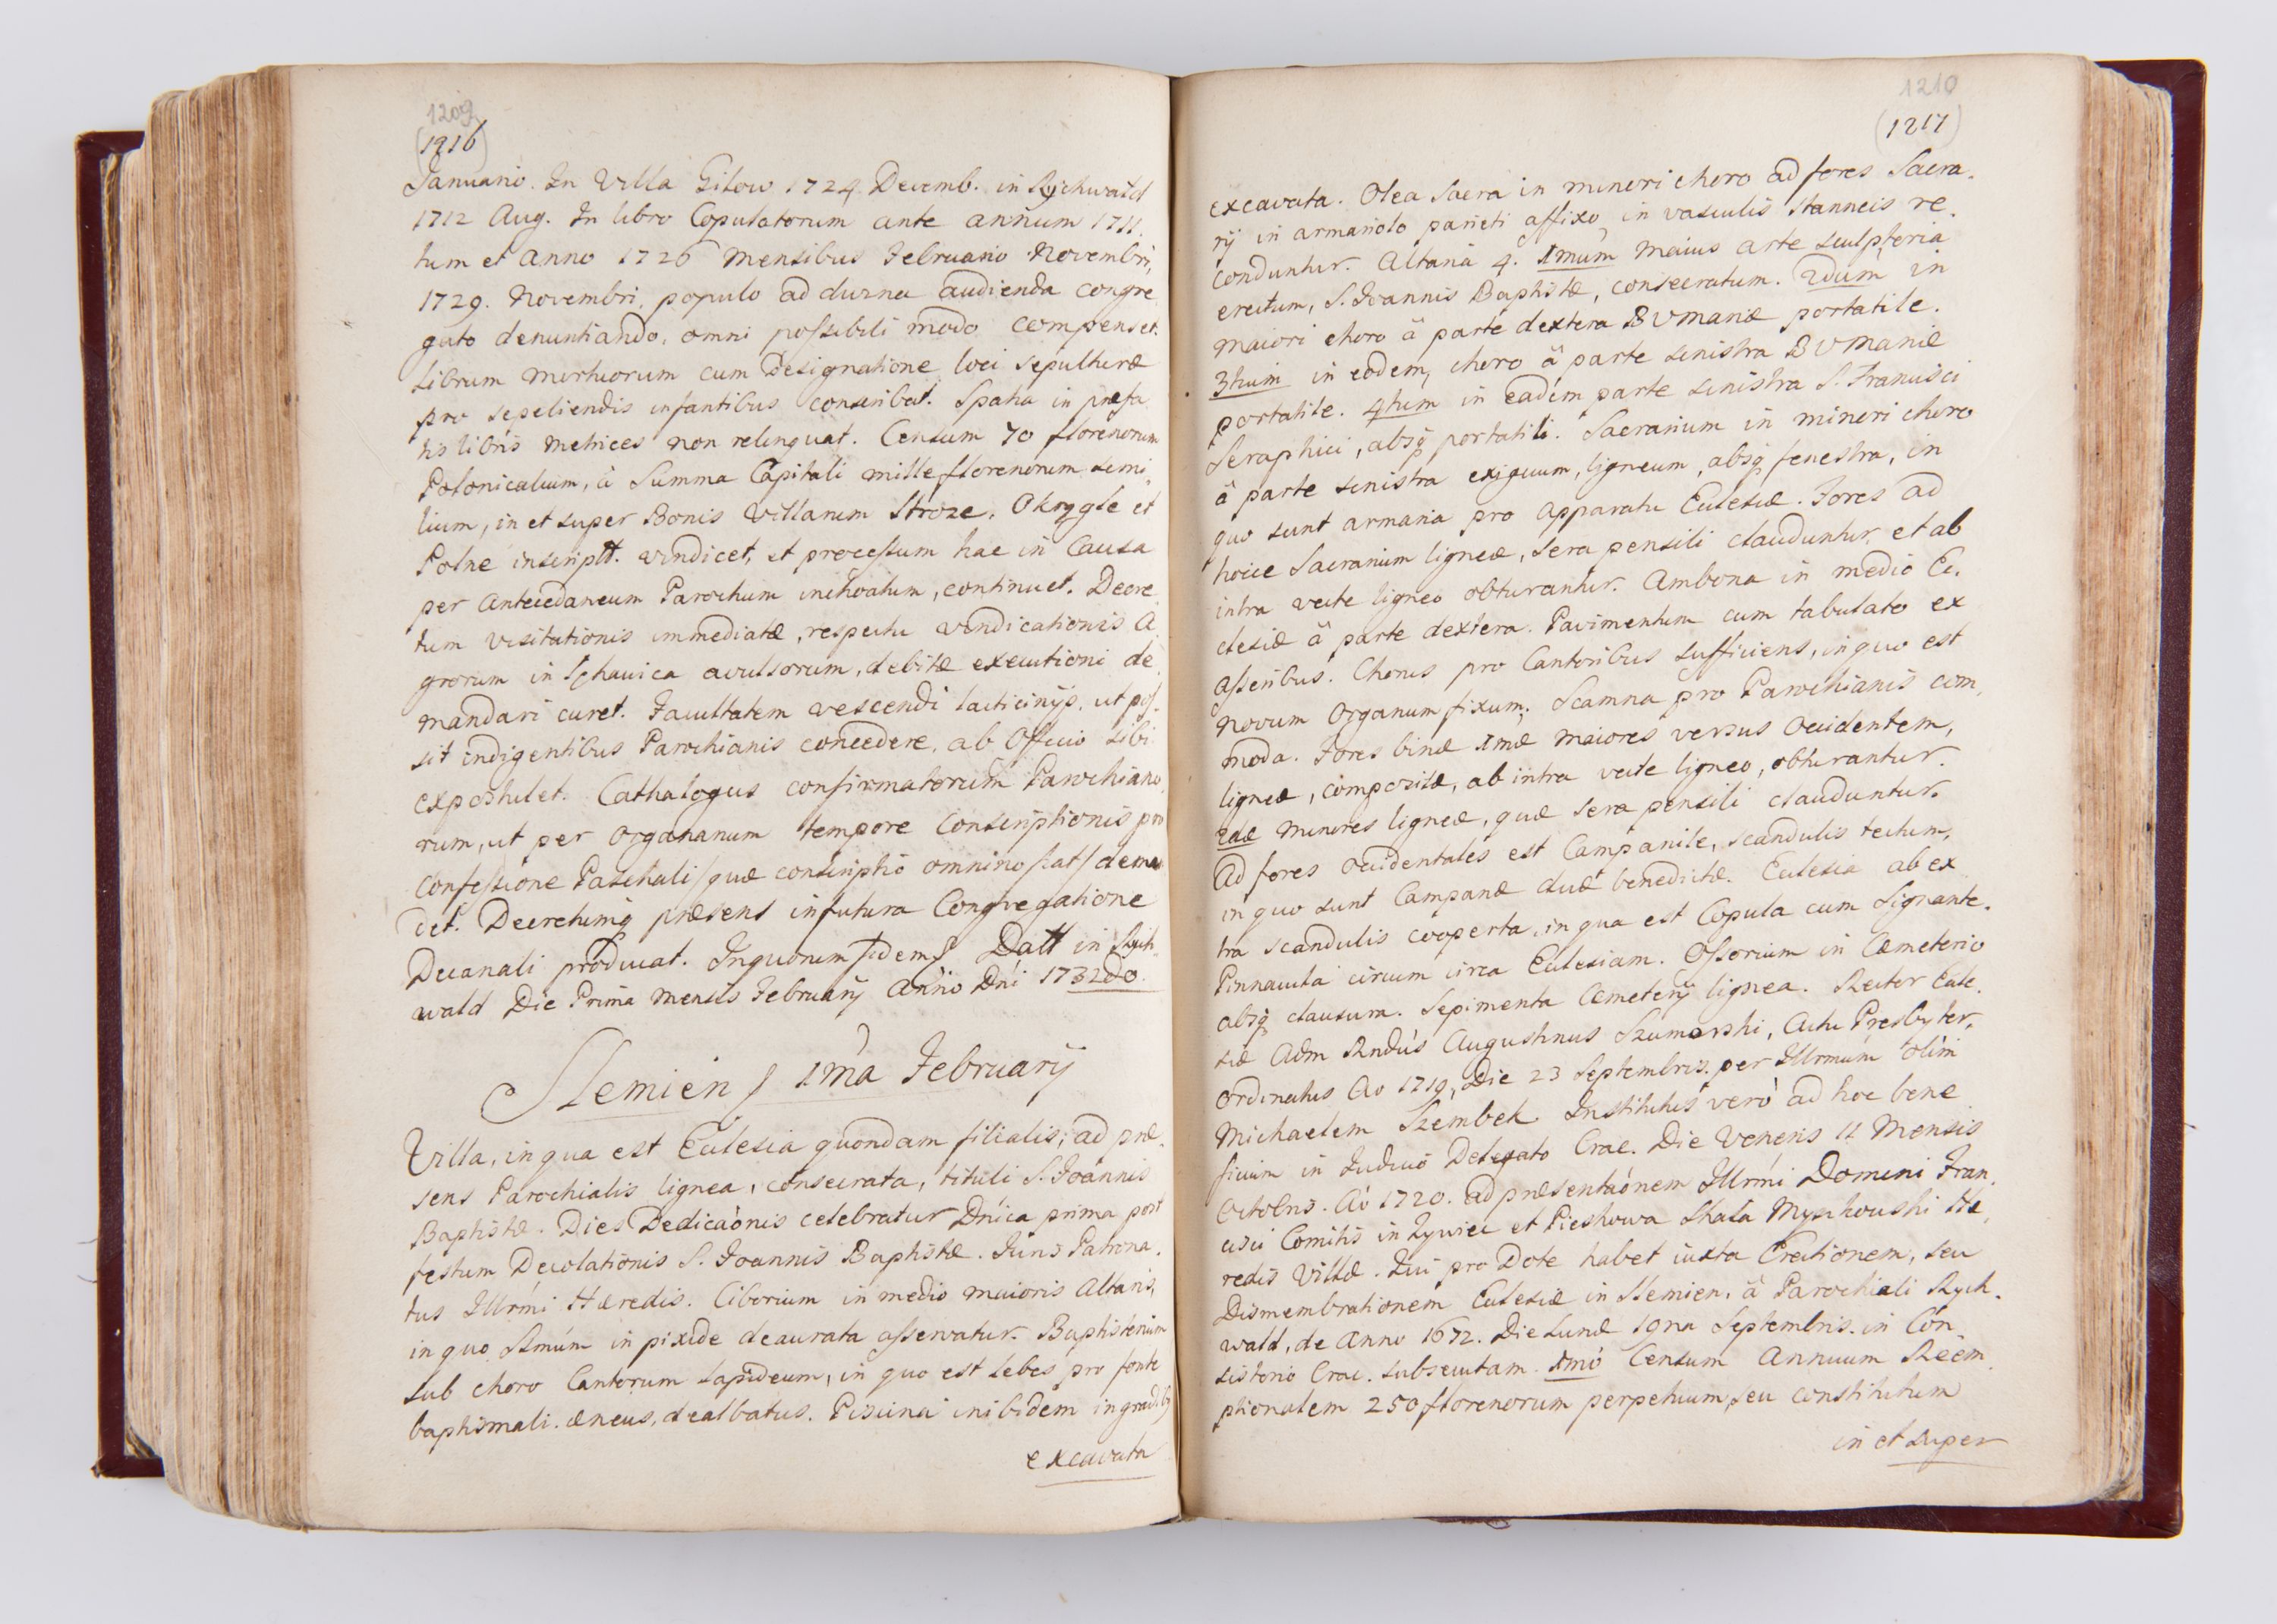 1209
(1216)
Januario. In Villa Gilow 1724 Decemb. in Rychwałd
1712 Aug. In libro Copulatorum ante annum 1711.
tum et Anno 1726 Mensibus Februario Novembri,
1729. Novembri, populo ad divina audienda congre
gato denuntiando, omni possibili modo compenset.
Librum mortuorum cum Designatione loci sepulturæ
pro sepeliendis infantibus conscribat. Spatia in præfa
tis libris metrices non relinquat. Censum 70 florenorum
Polonicalium, à Summa Capitali mille florenorum simi
lium, in et super Bonis Villarum Stroze, Okrągłe et
Polne inscriptt. vindicet, et processum hac in Causa
per Antecedaneum Parochum inchoatum, continuet. Decre
tum visitationis immediatæ, respectu vindicationis A
grorum in Ichavica avulsorum, debitæ executioni de
mandari curet. Facultatem vescendi lacticinijs, ut pos-
sit indigentibus Parochianis concedere, ab Officio sibi
expostulet. Cathalogus confirmatorum Parochiano
rum, ut per organarium tempore Conscriptionis pro
Confessione Paschali /quæ conscriptio omnino fiat/ deman
det. Decretumq præsens in futura Congregatione
Decanali producat. In quorum fidem Datt in Rych-
wald Die Prima Mensis Februarij Anno Dni 1732do.
Slemien 1ma Februarij
Villa, in qua est Ecclesia quondam filialis, ad præ-
sens Parochialis lignea, consecrata, tituli S. Joannis
Baptistæ. Dies Dedicaonis celebratur Dnica prima post
festum Decolationis S. Joannis Baptistæ. Juris Patrona-
tus Illrmi Hæredis. Ciborium in medio maioris Altaris,
in quo SSmum in pixide deaurata asservatur. Baptisterium
sub choro Cantorum lapideum, in quo est lebes pro fonte
baptismali. æneus, dealbatus. Piscina inibidem in gradib9
excavata
1210
(1217)
excavata. Olea Sacra in minori choro ad fores Sacra-
rij in armariolo parieti affixo, in vasculis stanneis re-
conduntur. Altaria 4. 1mum maius arte sculptoria
erectum, S. Joannis Baptistæ, consecratum. 2dum in
maiori choro à parte dextera BVMariæ portatile.
3tium in eodem choro à parte sinistra BVMariæ
portatile. 4tum in eadem parte sinistra S. Francisci
Seraphici, absq portatili. Sacrarium in minori choro
à parte sinistra exiguum, ligneum, absq fenestra, in
quo sunt armaria pro apparatu Ecclesiæ. Fores ad
hocce Sacrarium ligneæ, sera pensili clauduntur, et ab
intra vecte ligneo obturantur. Ambona in medio Ec-
clesiæ à parte dextera. Pavimentum cum tabulato ex
asseribus. Chorus pro Cantoribus sufficiens, in quo est
novum Organum fixum. Scamna pro Parochianis com-
moda. Fores binæ 1mæ maiores versus Occidentem,
ligneæ, compositæ, ab intra vecte ligneo, obturantur.
2dæ minores ligneæ, quæ sera pensili clauduntur.
Ad fores occidentales est Campanile, scandulis tectum,
in quo sunt Campanæ duæ benedictæ. Ecclesia ab ex
tra scandulis cooperta, in qua est Copula cum Signante.
Pinnacula circum circa Ecclesiam. Ossorium in Cæmeterio
absq clausura. Sepimenta Cæmeterij lignea. Rector Eccle-
siæ Adm Rndus Augustinus Szumarski, Actu Presbyter,
Ordinatus Ao 1719, Die 23 Septembris. per Illrmum olim
Michaelem Szembek. Institutus verò ad hoc bene
ficium in Judicio Delegato Crac. Die Veneris 11 Mensis
Octobris. Ao 1720. ad præsentaonem Illrmi Domini Fran-
cisci Comitis in Zywiec et Pieskowa Skała Myszkowski Hæ-
redis Villæ. Qui pro Dote habet iuxta Erectionem, seu
Dismembrationem Ecclesiæ in Slemien. à Parochiali Rych-
wald, de Anno 1672. Die Lunæ 19na Septembris. in Con-
sistorio Crac. subsecutam. 1mó Censum Annuum Reem-
ptionalem 250 florenorum perpetuum, seu constitutum
in et super